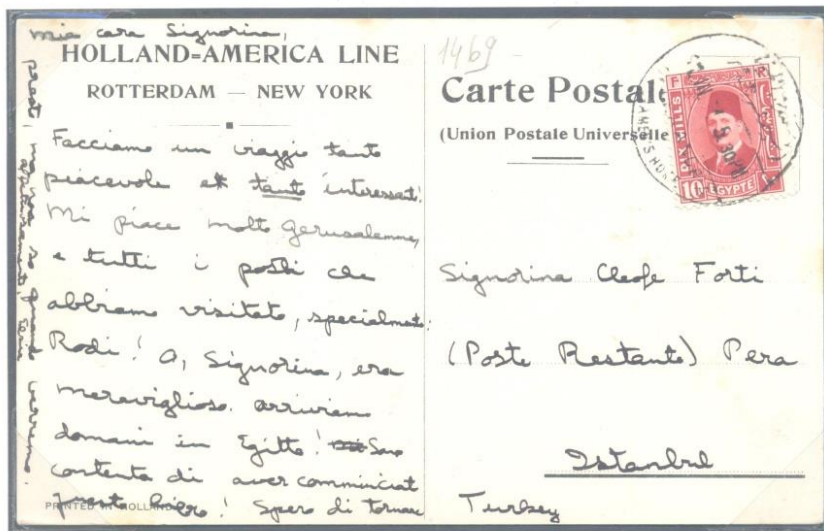 Mia cara Signorina,
HOLLAND=AMERICA LINE
ROTTERDAM — NEW YORK
Facciamo un viaggio tanto
piacevole e tanto interessant!
Mi piace molto Gerusalemme,
e tutti i posti che
abbiamo visitato, specialmente
Rodi! O, Signorina, era
meraviglioso. arriviamo
domani in Egitto! Sono
contenta di aver comminciat
libro! Spero di tornare
presto, ma non so quando verremo.
PRINTED IN HOLLAND
1469
Carte Postale
(Union Postale Universelle
DIX MILLS
10
EGYPTE
Signorina Cleofe Forti
(Poste Restante) Pera
Istanbul
Turkey